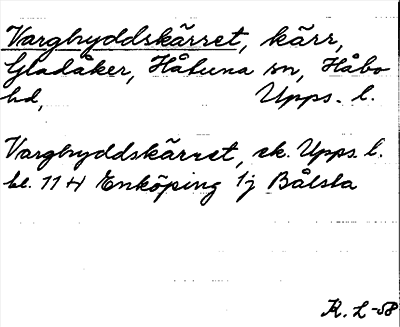 Vargbryddskärret, kärr,
Gladåker, Håtuna sn, Håbo
hd, Upps. l.
Vargbryddskärret, ek. Upps. l.
bl. 11 H Enköping 1j Bålsta
R. L -58